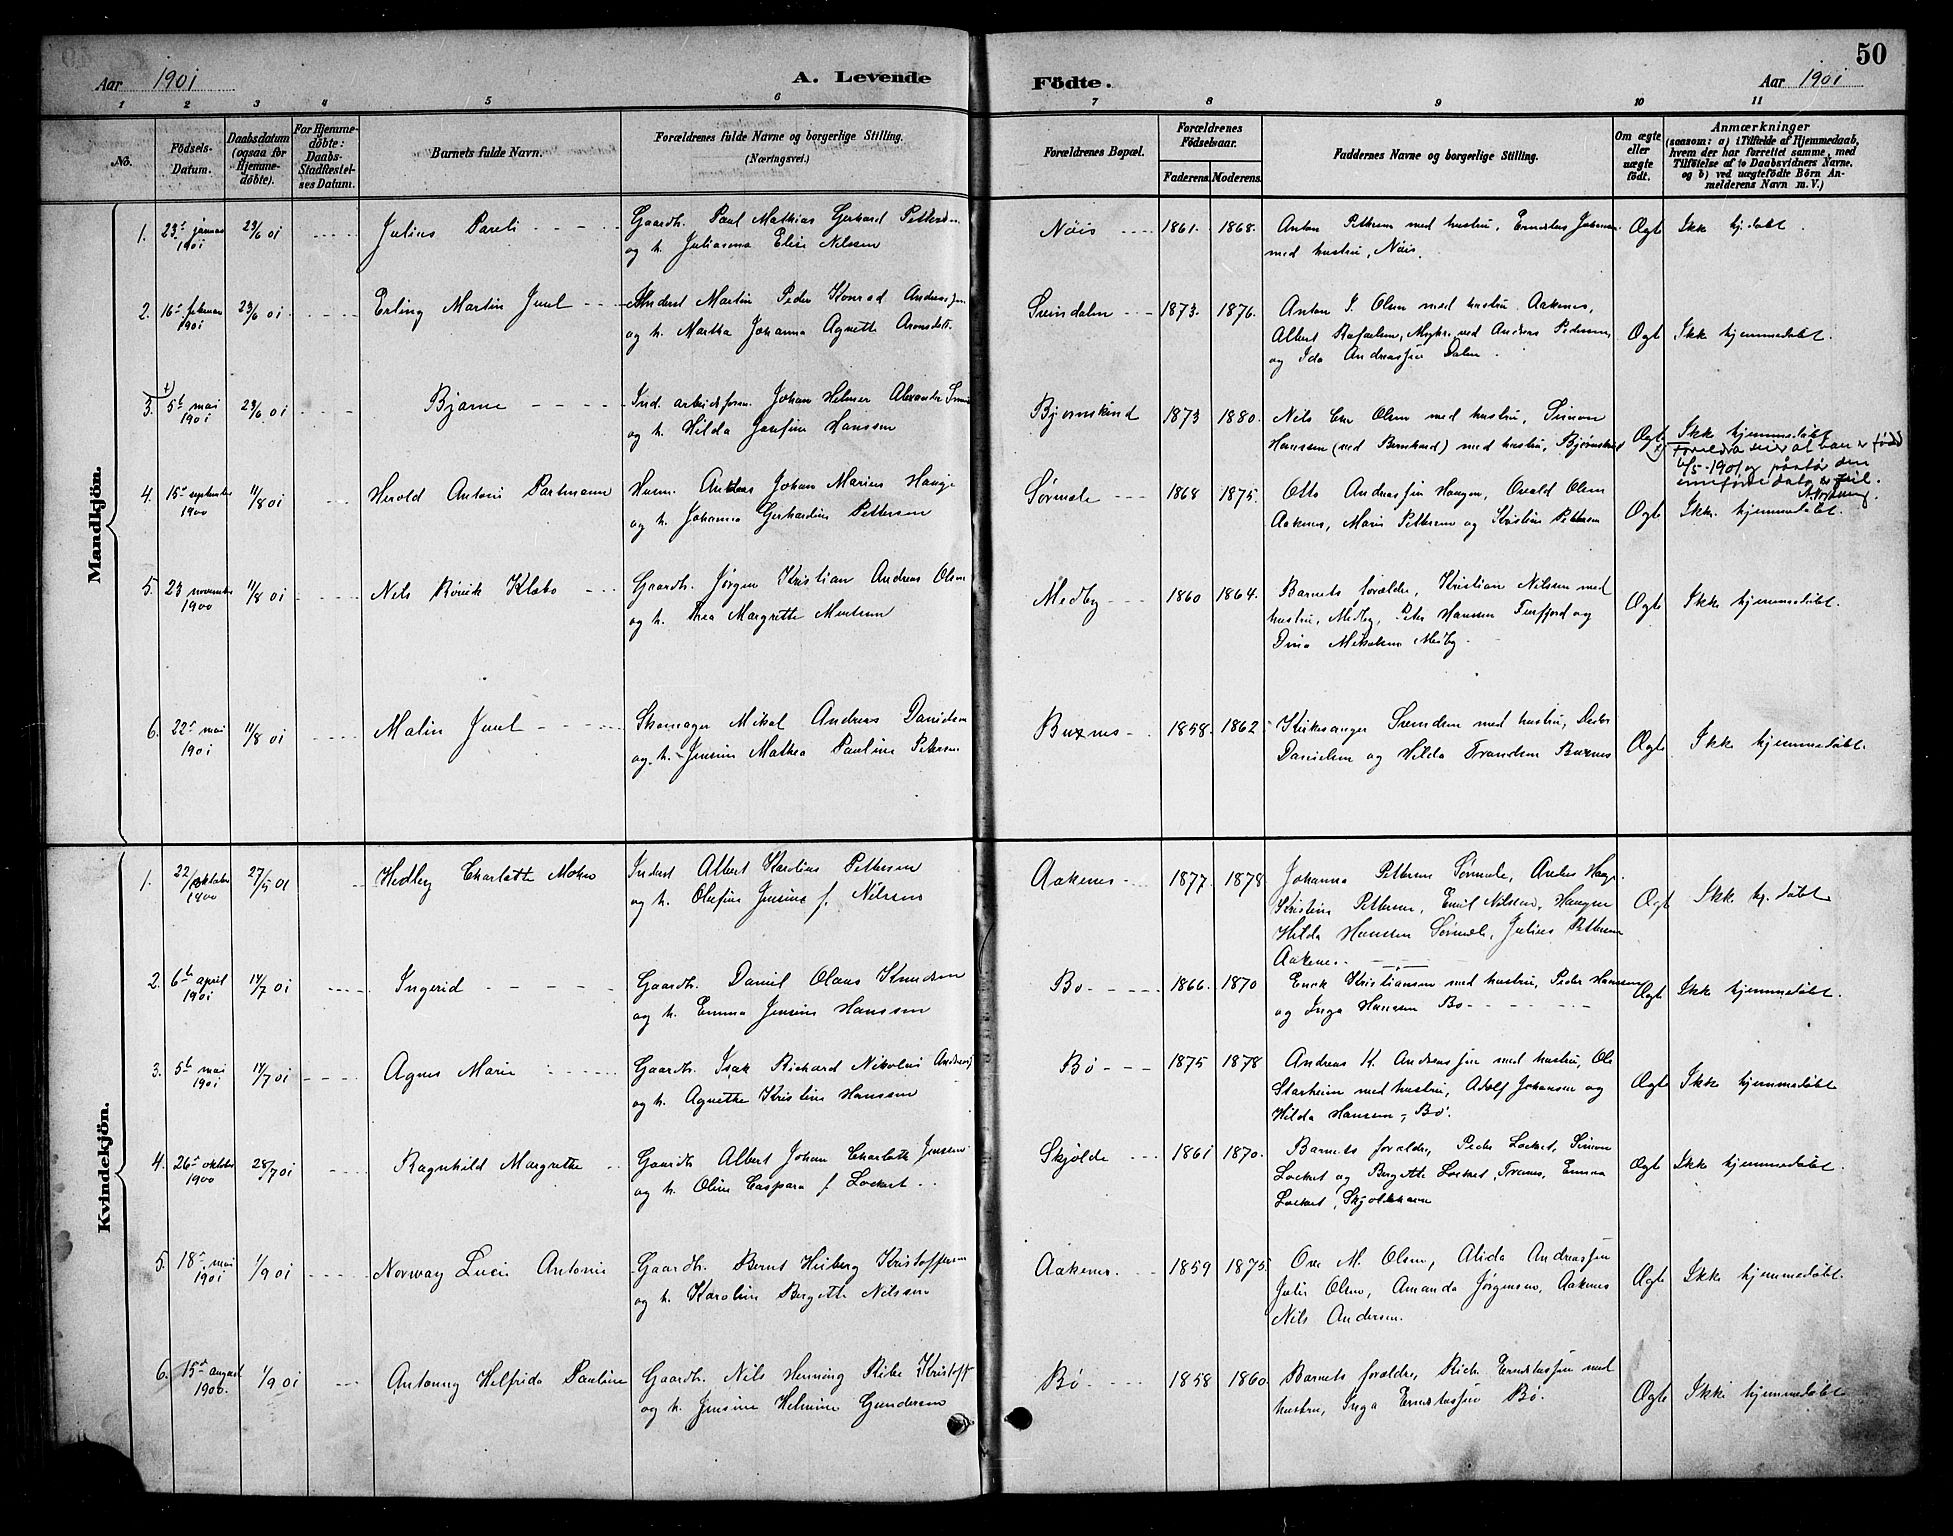 50
Aar 1901 A. Levende Födte. Aar 1901
1 2 3 4 5 6 7 8 9 10 11
No.
Födsels-
Datum.
Daabsdatum
(ogsaa for
Hjemme-
döbte).
For Hjemme-
döbte:
Daabs-
Stadfestel-
ses Datum.
Barnets fulde Navn.
Forældrenes fulde Navne og borgerlige Stilling.
(Næringsvei.)
Forældrenes Bopæl.
Forældrenes
Födselsaar.
Faderens. Moderens.
Faddernes Navne og borgerlige Stilling.
Om ægte
eller
uægte
födt.
Anmærkninger
(saasom: a) i Tilfælde af Hjemmedaab,
hvem der har forrettet samme, med
Tilföielse af to Daabsvidners Navne,
og b) ved uægtefödte Börn An-
melderens Navn m. V.)
Mandkjön.
1. 23. januar 1901 23/6 01 Julius Pareli
Gaardb. Paul Mathias Gerhard Petters
og h. Julianna Elise Nilssen
Nöis 1861. 1868.
Anton Pettersen med hustru,
med hustru, Nöis.
Ægte Ikke hj. døbt.
2. 16. februar 1901 23/6 01 Erling Martin Juul
Inderst Martin Peder Konrad Andreassen
og h. Martha Johanna Agnette
Svendalen 1873. 1876.
Anton J. Olsen med hustru, Aakenes,
Albert Rafaelsen, Andreas Pedersen,
og Ida Andreassen Dalen.
Ægte Ikke hjemmedøbt.
3. 5t mai 1901 23/6 01 Bjarne
Ind. arbeidsform. Johan Helmer Alexander
og h. Hilda Josefine Hanssen
Bjørnskind 1873 1880.
Nils Chr Olsen med hustru, Simon
Hanssen (ved Bernhard) med hustru, Bjørnskind
Ægte Ikke hjemmedøbt
Foreldra sier at han er født
6/5-1901 og påstår den
innførte dato er feil.
4. 15. september 1900 11/8 01 Herold Antoni Partmann
Husm. Anders Johan Marius Hauge
og h. Johanna Gerhardine Pettersen
Sørmele 1868 1875.
Otto Andreassen Haugen, Osvald Olsen
Aakenes, Marie Pettersen og Kristine Pettersen
Ægte Ikke hjemmedøbt.
5. 23 november 1900 11/8 01 Nils Rörvik Klæbo
Gaardb. Jørgen Kristian Andreas Olsen
og h. Thea Margrethe Mentsen
Medby 1860 1864.
Barnets forældre, Kristian Nilsen med
hustru, Medby, Peter Hanssen Finfjord og
Dina Mikalsen Medby.
Ægte Ikke hjemmedøbt.
6. 22. mai 1901 11/8 01 Malin Juul
Skomager Mikal Andreas Danielsen
og h. Jensine Mathea Pauline Petersen
Buxnes 1858. 1862
Kirkesanger Svendsen med hustru, Peder
Danielsen og Hilda Trondsen Buxnes
Ægte Ikke hjemmedøbt.
Kvindekjön.
1. 22/oktober 1900 27/5 01 Hedley Charlotte
Inderst Albert Karolius Pettersen
og h. Olufine Jensine f. Nilssen
Aakenes 1877. 1878
Johanna Pettersen Sørmele, Anders Hauge.
Kristine Pettersen, Emil Nilssen, Haugen
Hilda Hanssen Sørmele, Julius Pettersen
Aakenes.
Ægte Ikke hj. døbt
2. 6te april 1901 14/7 01 Ingerid
Gaardb. Daniel Olaus Knudsen
og h. Emma Jensine Hanssen
Bø 1866. 1870
Enok Kristiansen med hustru, Peder Hanssen
og Inga Hanssen Bø
Ægte Ikke hjemmedøbt.
3. 5te mai 1901 14/7 01 Agnes Marie
Gaardb. Isak Richard Nikolai Andreas
og h. Agnethe Kristine Hanssen
Bø 1875 1878
Andreas K. Andreassen med hustru, Ole
Starheim med hustru, Adolf Johansen og
Hilda Hansen, Bø.
Ægte Ikke hjemmedøbt
4. 26. oktober 1900 28/7 01 Ragnhild Margrethe
Gaardb. Albert Johan Charlotte Jenssen
og h. Oline Caspara f. Lockert
Skjølde 1861 1870.
Barnets forældre, Peder Lockert, Simon
Lockert og Bergitte Lockert, Tranes, Emma
Lockert, Skjoldehavn
Ægte Ikke hjemmedøbt.
5. 18. mai 1901 1/9 01 Norway Lucie Antonie
Gaardb. Bernt Heiberg Kristoffersen
og h. Karoline Bergitte Nilssen
Aakenes. 1859 1875
Ove M. Olsen, Alida Andreassen
Julie Olsen, Amanda Jørgensen, Aakenes
Nils Andersen.
Ægte Ikke hjemmedøbt.
6. 15. august 1900. 1/9 01 Antonny Helfrida Pauline
Gaardb. Nils Henning Ribe Kristoff
og h. Jensine Helmine Gundersen
Bø 1858 1860
Barnets forældre, Rich. Ernstassen med
hustru, Inga Ernstassen Bø.
Ægte Ikke hjemmedøbt